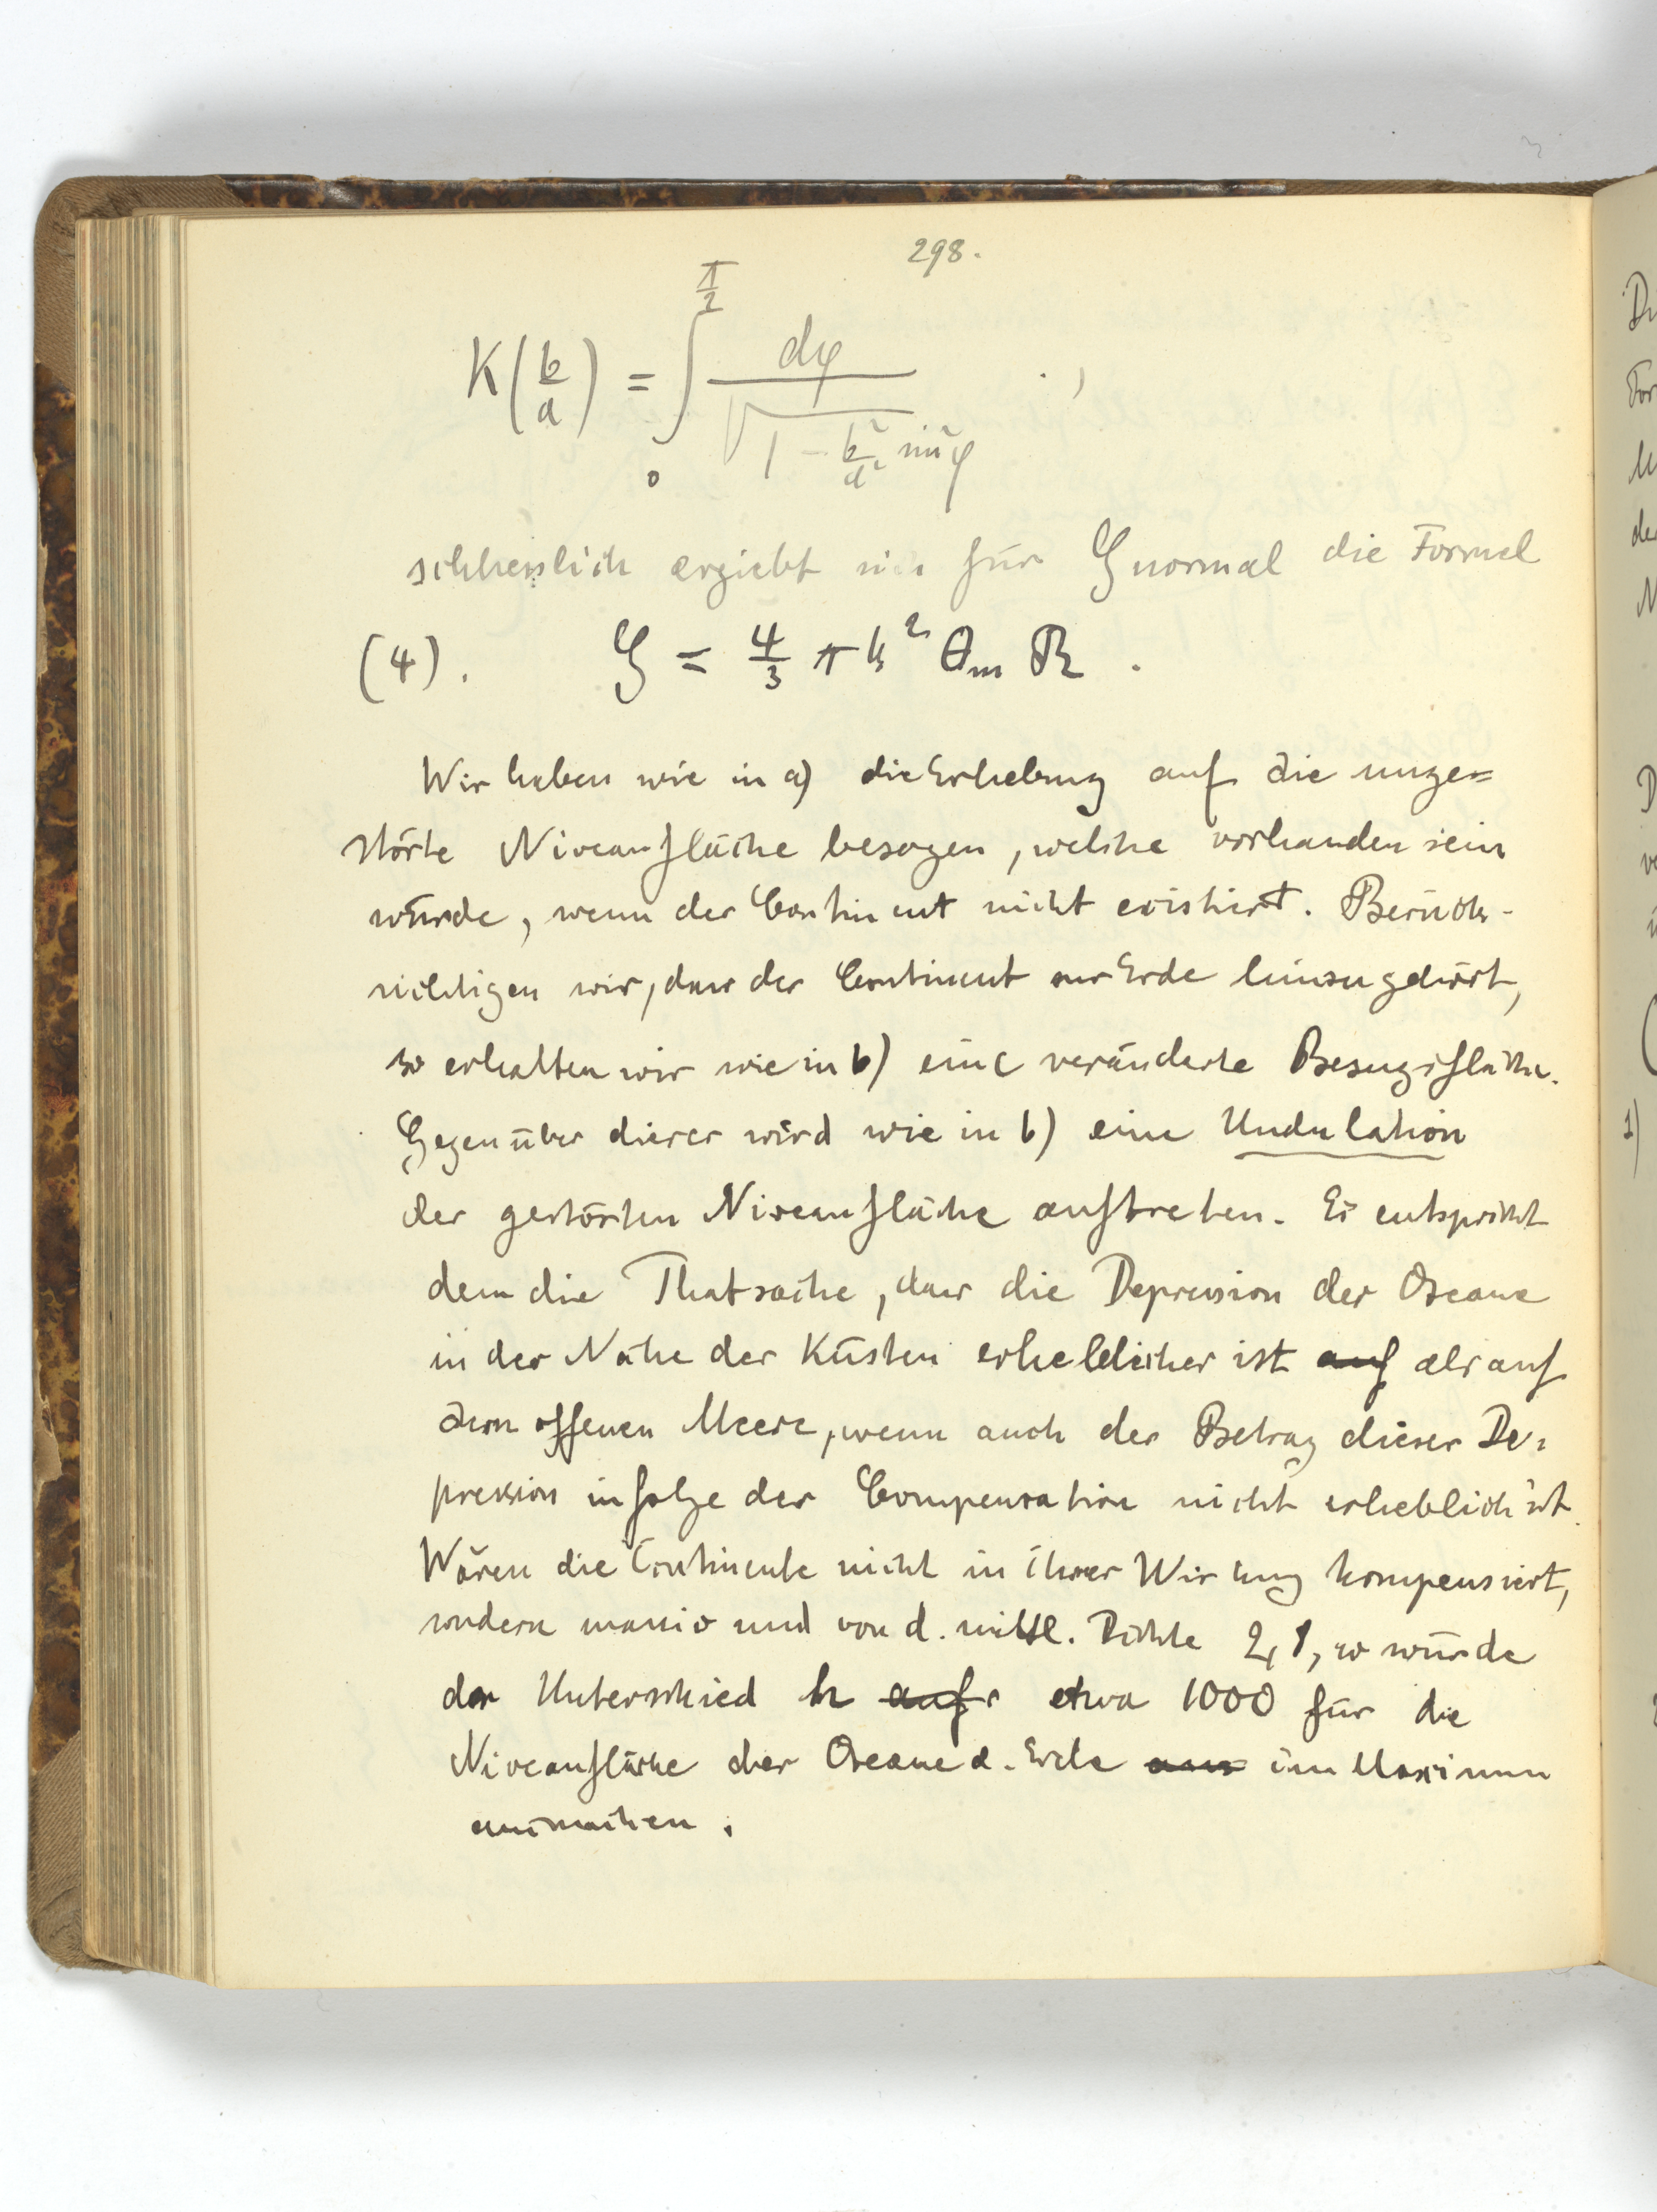 298.
K(b/a) = ∫₀^{π/2} dφ / √(1 - b²/a² sin²φ) . ,
schliesslich ergiebt sich für G normal die Formel
(4). G = 4/3 π k² θm R .
Wir haben wie in a) die Erhebung auf die unge=
störte Niveaufläche bezogen, welche vorhanden sein
würde, wenn der Continent nicht existirt. Berück-
sichtigen wir, dass der Continent zur Erde hinzugehört,
so erhalten wir wie in b) eine veränderte Bezugsfläche.
Gegenüber dieser wird wie in b) eine Undulation
der gestörten Niveaufläche auftreten. Es entspricht
dem die Thatsache, dass die Depression der Oceane
in der Nähe der Küsten erheblicher ist auf als auf
dem offenen Meere, wenn auch der Betrag dieser De=
pression infolge der Compensation nicht erheblich ist.
Wären die Continente nicht in ihrer Wirkung kompensiert,
sondern massiv und von d. mittl. Dichte 2,8, so würde
der Unterschied h auf etwa 1000 für die
Niveaufläche der Oceane d. Erde aus im Maximum
ausmachen.